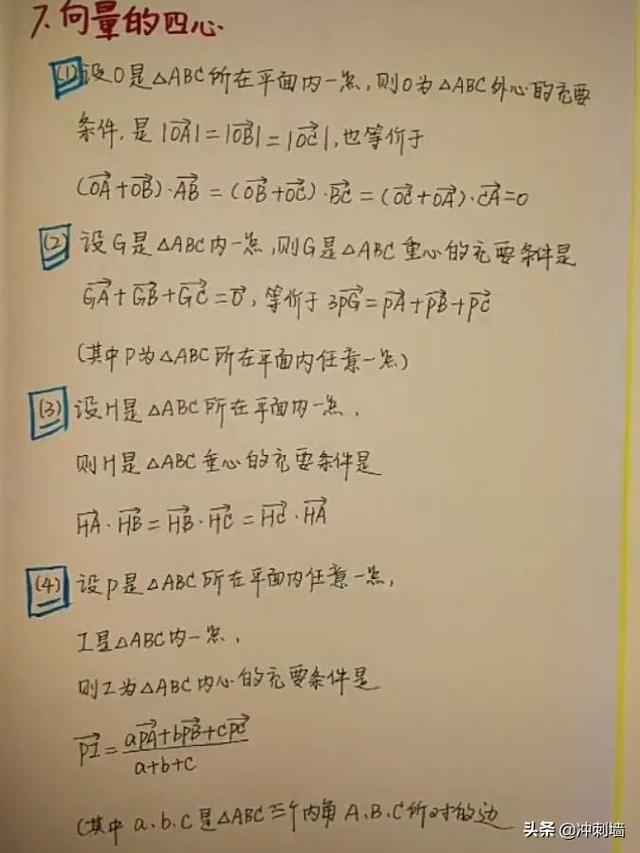 7. 向量的四心
(1) 设O是△ABC所在平面内一点,则O为△ABC外心的充要
条件,是 |\overrightarrow{OA}| = |\overrightarrow{OB}| = |\overrightarrow{OC}|,也等价于
(\overrightarrow{OA}+\overrightarrow{OB})·\overrightarrow{AB} = (\overrightarrow{OB}+\overrightarrow{OC})·\overrightarrow{BC} = (\overrightarrow{OC}+\overrightarrow{OA})·\overrightarrow{CA}=0
(2) 设G是△ABC内一点,则G是△ABC重心的充要条件是
\overrightarrow{GA}+\overrightarrow{GB}+\overrightarrow{GC}=\overrightarrow{0},等价于 3\overrightarrow{PG}=\overrightarrow{PA}+\overrightarrow{PB}+\overrightarrow{PC}
(其中P为△ABC所在平面内任意一点)
(3) 设H是△ABC所在平面内一点,
则H是△ABC垂心的充要条件是
\overrightarrow{HA}·\overrightarrow{HB}=\overrightarrow{HB}·\overrightarrow{HC}=\overrightarrow{HC}·\overrightarrow{HA}
(4) 设P是△ABC所在平面内任意一点,
I是△ABC内一点,
则I为△ABC内心的充要条件是
\overrightarrow{PI}=\frac{a\overrightarrow{PA}+b\overrightarrow{PB}+c\overrightarrow{PC}}{a+b+c}
(其中a、b、c是△ABC三个内角A、B、C所对的边
头条 @冲刺墙